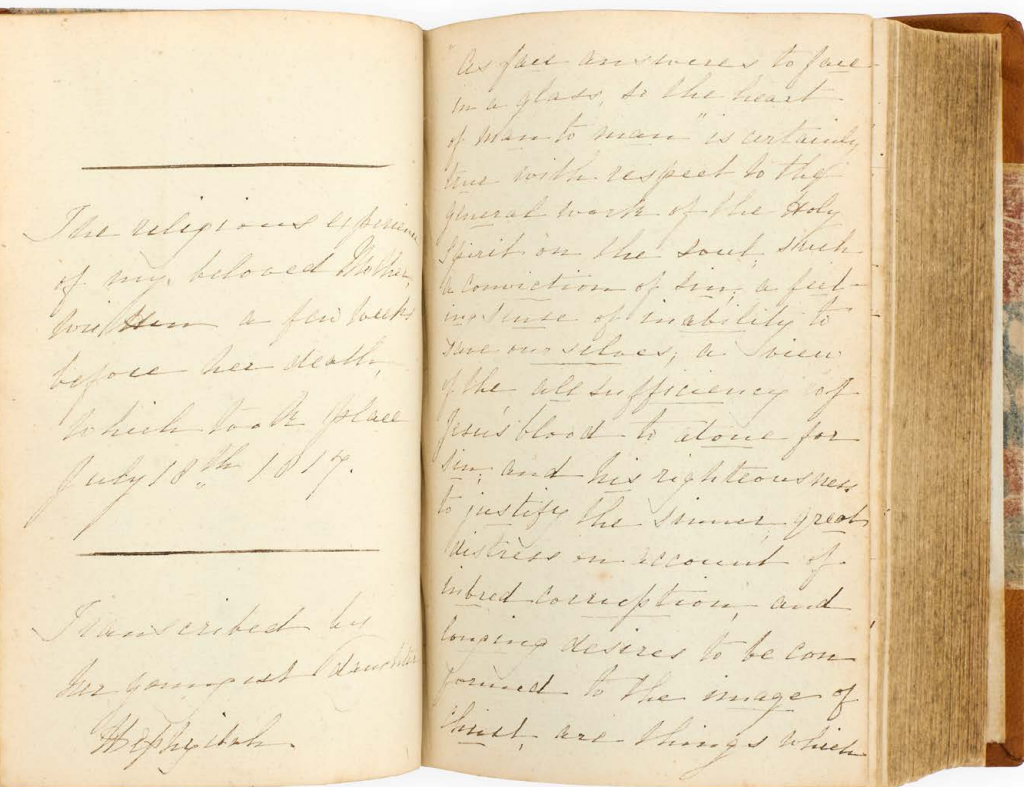 The religious experience
of my beloved Mother,
written a few weeks
before her death,
which took place
July 18th 1817.
Transcribed by
her youngest daughter
Hephzibah.
"As face answeres to face
in a glass, so the heart
of man to man" is certainly
true with respect to the
general work of the Holy
Spirit on the soul, such
a conviction of sin, a feel-
ing sense of inability to
save ourselves, a view
of the all sufficiency of
Jesus' blood to atone for
sin, and his righteousness
to justify the sinner, great
distress on account of
inbred corruption, and
longing desires to be con
formed to the image of
Christ, are things which